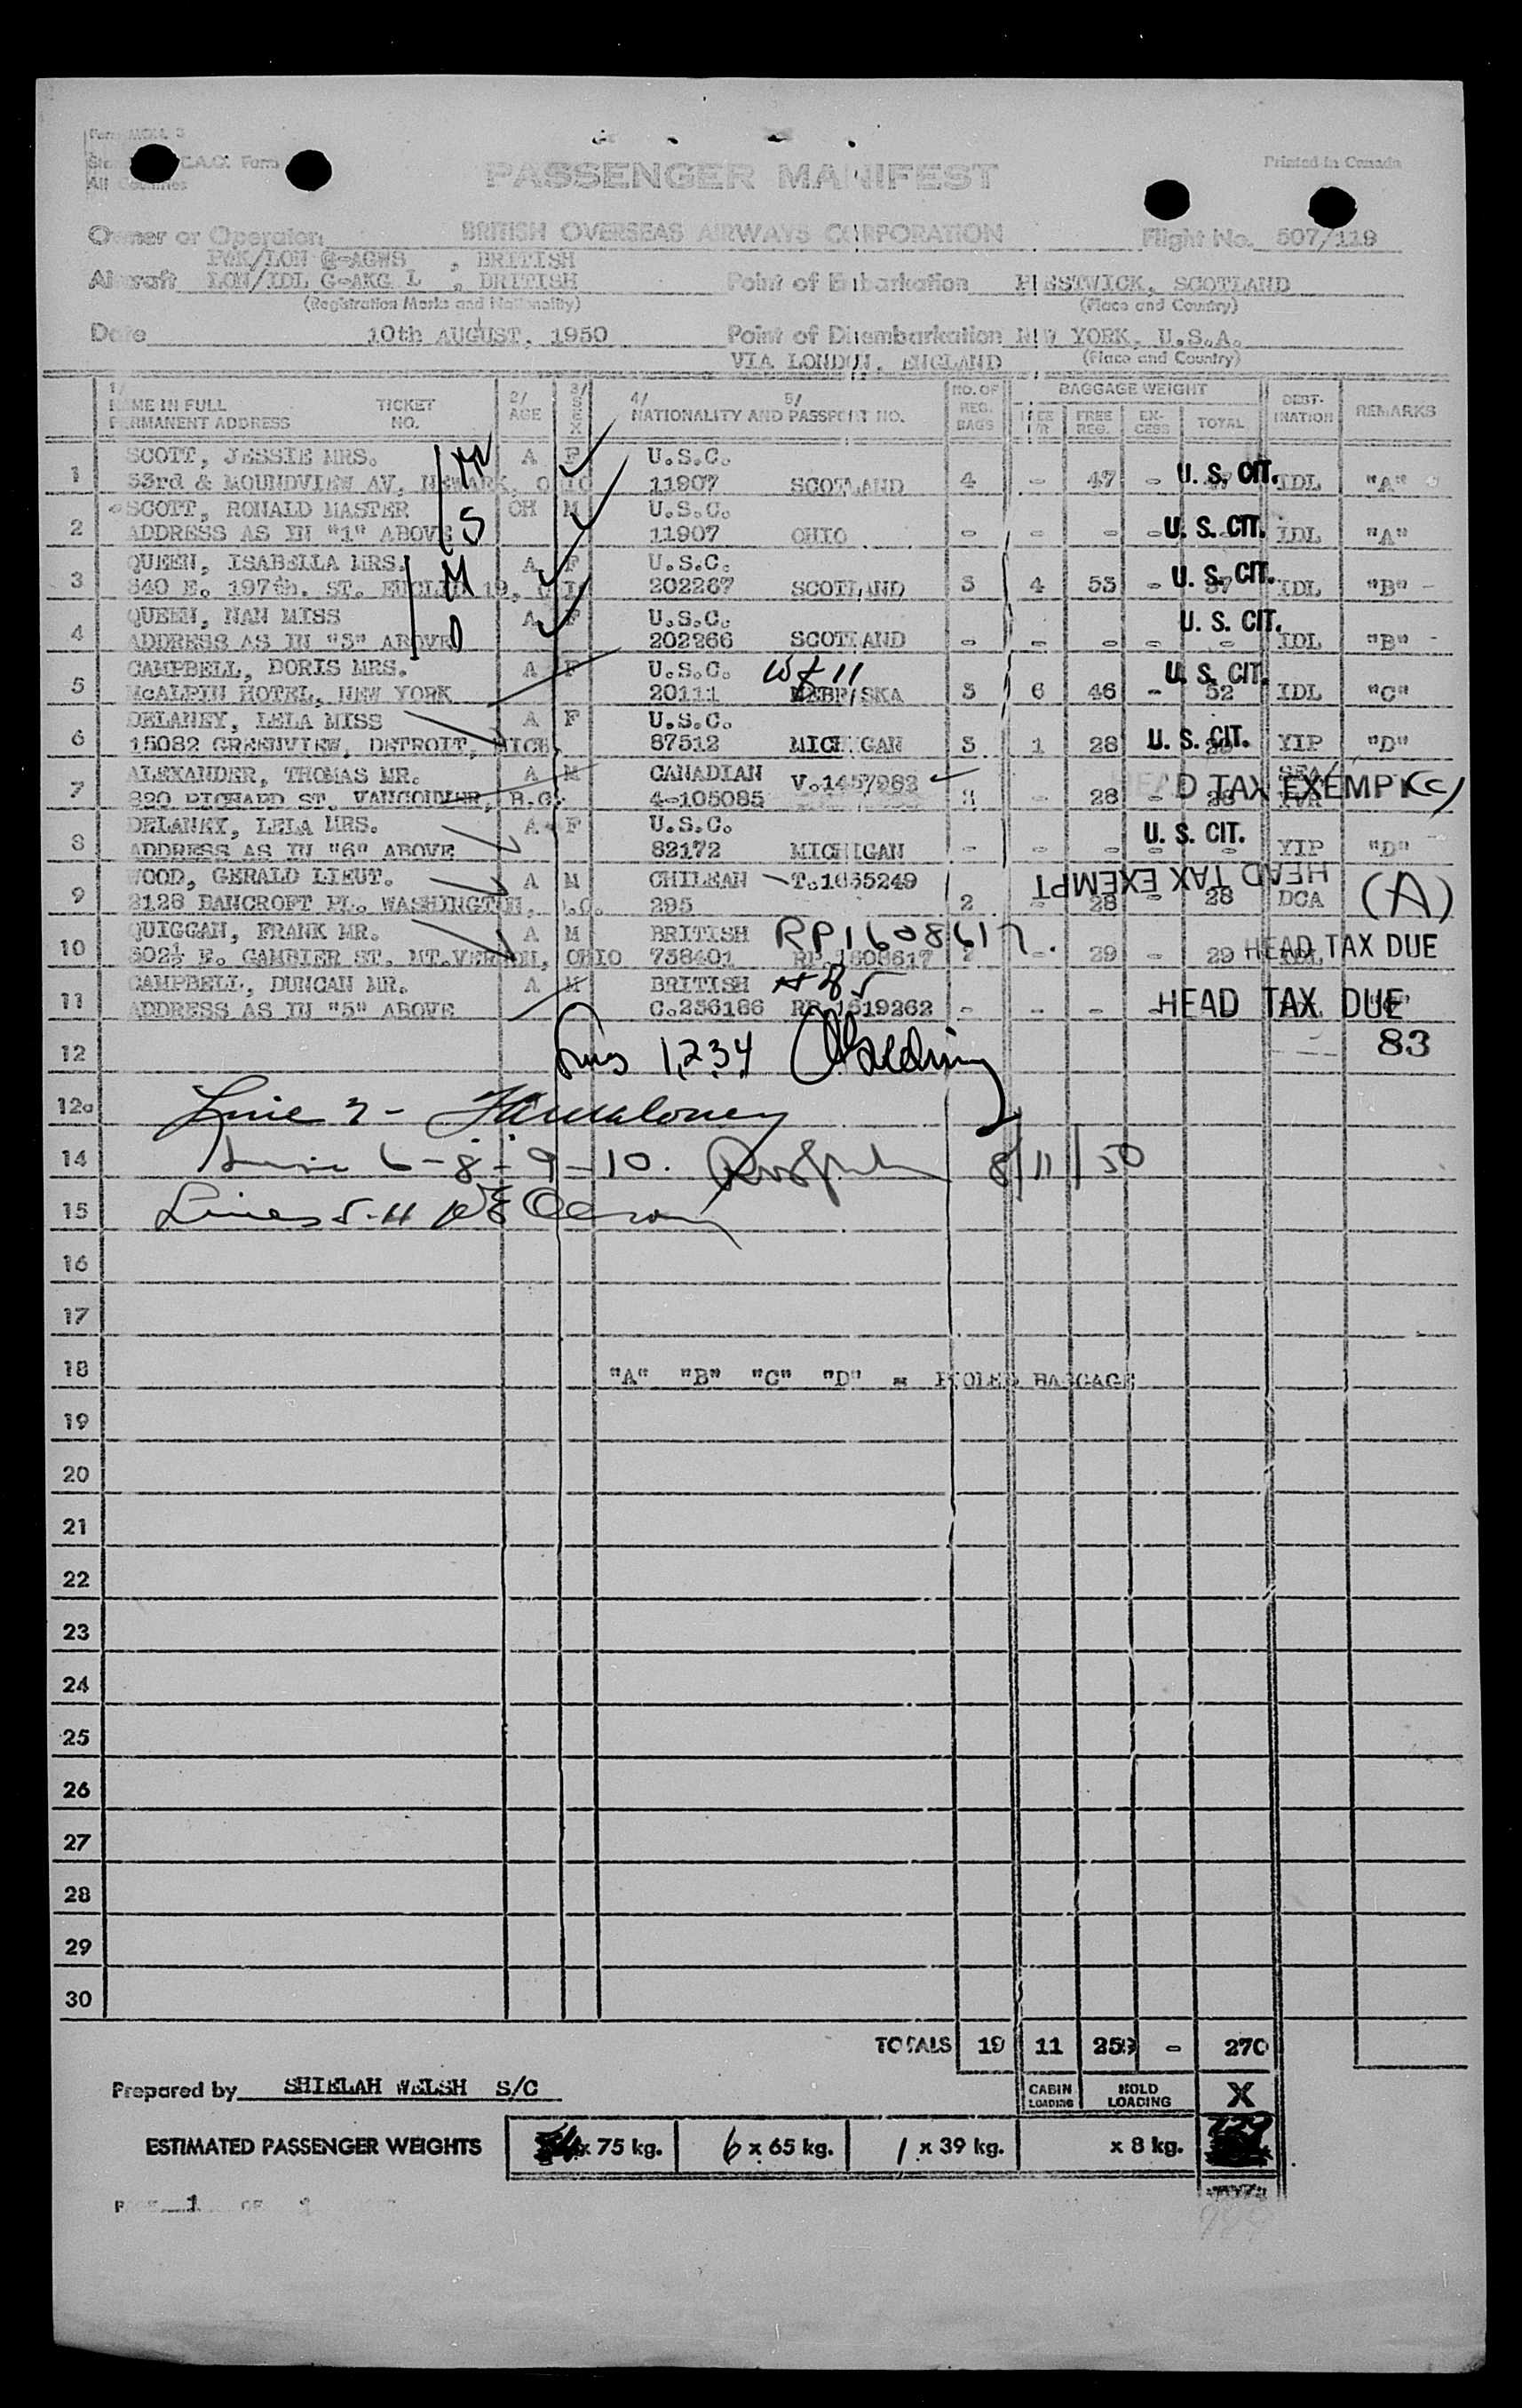 Printed in Canada
PASSENGER MANIFEST
Owner or Operator BRITISH OVERSEAS AIRWAYS CORPORATION Flight No. 507/119
PWK/LON G-AGWS , BRITISH
Aircraft LON/IDL G-AKG L , BRITISH Point of Embarkation PRESTWICK, SCOTLAND
(Registration Marks and Nationality) (Place and Country)
Date 10th AUGUST, 1950 Point of Disembarkation NEW YORK, U.S.A.
VIA LONDON, ENGLAND (Place and Country)
1/ NAME IN FULL TICKET 2/ AGE 3/ SEX 4/ 5/ NO. OF REG. BAGS BAGGAGE WEIGHT DEST- REMARKS
PERMANENT ADDRESS NO. NATIONALITY AND PASSPORT NO. FREE REG. EX-CESS TOTAL INATION
SCOTT, JESSIE MRS. M A F U.S.C. U. S. CIT.
1 53rd & MOUNDVIEW AV, NEWARK, OHIO 11907 SCOTLAND 4 - 47 - 47 IDL "A"
SCOTT, RONALD MASTER S CH M U.S.C. U. S. CIT.
2 ADDRESS AS IN "1" ABOVE 11907 OHIO - - - - - IDL "A"
QUEEN, ISABELLA MRS. M A F U.S.C. U. S. CIT.
3 540 E. 197th. ST. EUCLID 19, 202267 SCOTLAND 3 4 53 - 57 IDL "B" -
QUEEN, NAN MISS D A F U.S.C. U. S. CIT.
4 ADDRESS AS IN "3" ABOVE 202266 SCOTLAND - - - - - IDL "B" -
CAMPBELL, DORIS MRS. A F U.S.C. U. S. CIT.
5 McALPIN HOTEL, NEW YORK 20111 NEBRASKA 3 6 46 - 52 IDL "C"
DELANEY, LELA MISS A F U.S.C.
6 15082 GREENVIEW, DETROIT, MICH. 87512 MICHIGAN 3 1 28 - U. S. CIT. YIP "D"
ALEXANDER, THOMAS MR. A M CANADIAN V.1457983 HEAD TAX EXEMPT (c)
7 220 RICHARD ST. VANCOUVER, B.C. 4-105085 - 28 - 28 YVR
DELANEY, LELA MRS. A F U.S.C. U. S. CIT.
8 ADDRESS AS IN "6" ABOVE 82172 MICHIGAN - - - - - YIP "D"
WOOD, GERALD LIEUT. A M CHILEAN T.1665249 HEAD TAX EXEMPT (A)
9 2128 BANCROFT PL. WASHINGTON, D.C. 295 2 - 28 - 28 DCA
QUIGGAN, FRANK MR. A M BRITISH RP1608617. HEAD TAX DUE
10 502½ E. GAMBIER ST. MT.VERNON, OHIO 758401 RP.1608617 2 - 29 - 29 IDL
CAMPBELL, DUNCAN MR. A M BRITISH HEAD TAX DUE
11 ADDRESS AS IN "5" ABOVE C.236186 RP.1619262 - - - -
12 Lines 1,2,3,4 83
12a Line 7 -
14 Line 6-8-9-10. 8/11/50
15 Lines 5-11
16
17
18 "A" "B" "C" "D" = POOLED BAGGAGE
19
20
21
22
23
24
25
26
27
28
29
30
TOTALS 19 11 259 - 270
Prepared by SHIELAH WELSH S/C CABIN LOADING HOLD LOADING X
ESTIMATED PASSENGER WEIGHTS x 75 kg. 6 x 65 kg. 1 x 39 kg. x 8 kg. 729
PAGE 1 OF